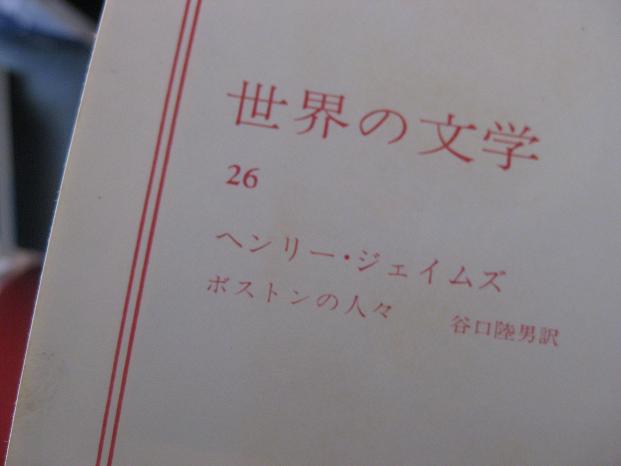 世界の文学
26
ヘンリー・ジェイムズ
ボストンの人々 谷口陸男訳